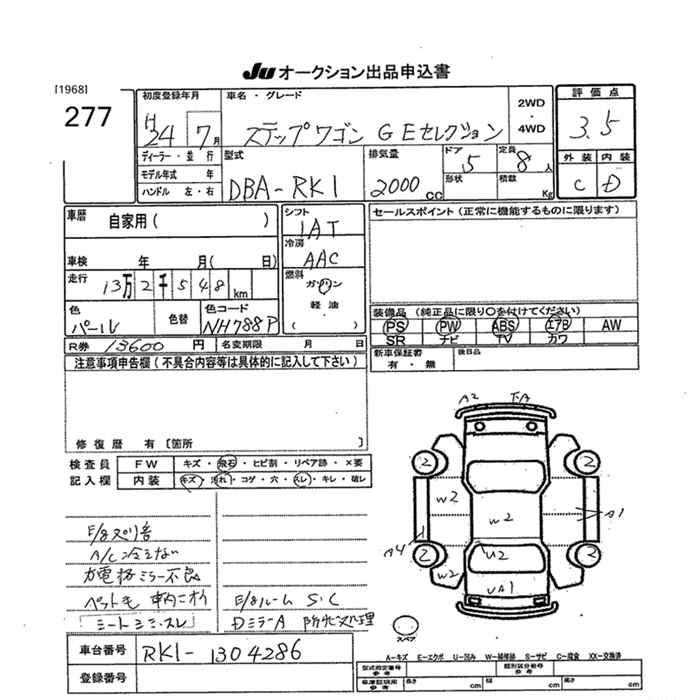 JU オークション出品申込書
[1968]
277
初度登録年月
H24 7月
車名・グレード
ステップワゴン GEセレクション
2WD
・
4WD
評価点
3.5
外装 内装
C D
ディーラー・並行
モデル年式 年
ハンドル 左・右
型式
DBA-RK1
排気量
2000 cc
ドア
5
形状
定員
8人
積載
Kg
車歴
自家用( )
車検 年 月( 日)
走行
13万2千548km
色
パール
色替
色コード
NH788P
シフト
IAT
冷房
AAC
燃料
ガソリン
軽油
( )
セールスポイント(正常に機能するものに限ります)
装備品(純正品に限り○を付けてください)
PS PW ABS エアB AW
SR ナビ TV カワ
新車保証書
有・無
後日品
R券 13600 円 名変期限 月 日
注意事項申告欄(不具合内容等は具体的に記入して下さい)
修復歴 有[箇所 ]
検査員
記入欄
FW キズ・飛石・ヒビ割・リペア跡・×要
内装 キズ・汚れ・コゲ・穴・スレ・キレ・破レ
A/C冷えない
電格ミラー不良
ペット毛 車内ニオイ
シートシミ・スレ
E/gルーム S・C
DミラーA 防サビ処理
車台番号 RK1-1304286
登録番号
A2 FA
2 2
W2
W2
A1
A4
2 U2 2
W2
UA1
スペア
A-キズ E-エクボ U-凹み W-補修跡 S-サビ C-腐食 XX-交換済
型式指定番号
参考
類別区分番号
参考
車庫証明用
参考
長さ cm 幅 cm 高さ cm